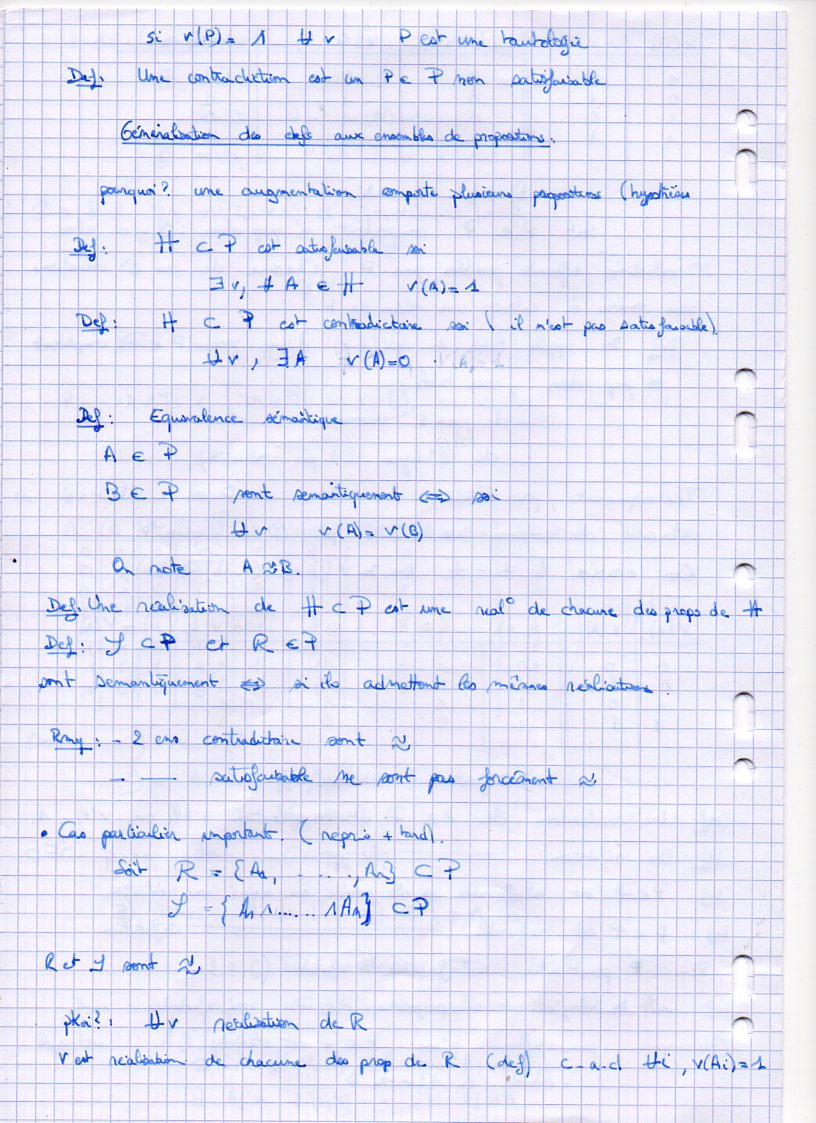 si v(P) = 1 ∀ v P est une tautologie
Def: Une contradiction est un P ∈ P non satisfaisable
Généralisation des defs aux ensembles de propositions.
pourquoi? une augmentation comporte plusieurs propositions (hypothèses
Def: H ⊂ P est satisfaisable ssi
∃ v, ∀ A ∈ H v(A) = 1
Def: H ⊂ P est contradictoire ssi (il n'est pas satisfaisable)
∀ v, ∃ A v(A)=0
Def: Equivalence sémantique
A ∈ P
B ∈ P sont semantiquement ⇔ ssi
∀ v v(A) = v(B)
On note A ≈ B.
Def. Une realisation de H ⊂ P est une real° de chacune des props de H
Def: S ⊂ P et R ∈ P
sont semantiquement ⇔ si ils admettent les mêmes réalisations.
Rmq: - 2 ens contradictoire sont ≈
- — satisfaisable ne sont pas forcément ≈
• Cas particulier important. (repris + tard).
Soit R = {A1, . . . ., An} ⊂ P
S = {A1 ∧ ...... ∧ An} ⊂ P
R et S sont ≈
pkoi?: ∀ v realisation de R
v est réalisation de chacune des prop de R (def) c-a-d ∀i, v(Ai)=1